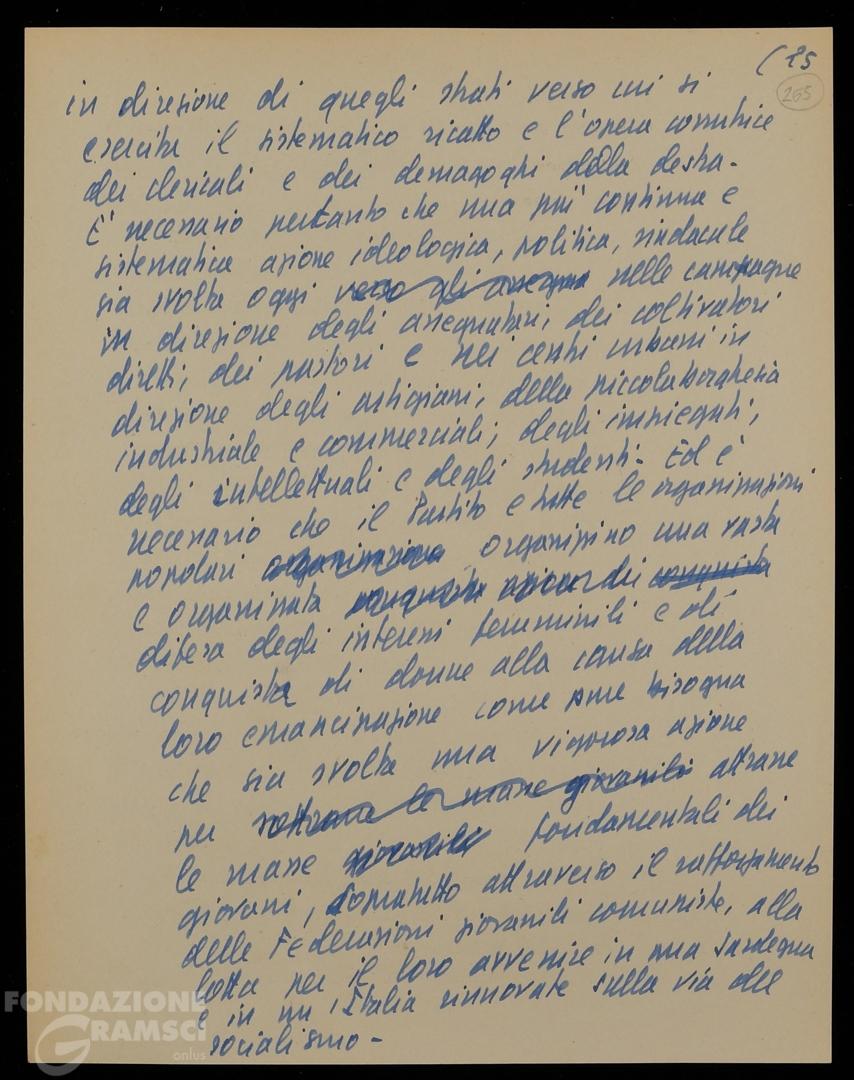 ( 85
265
in direzione di quegli strati verso cui si
esercita il sistematico ricatto e l'opera corruttrice
dei clericali e dei demagoghi della destra -
E' necessario pertanto che una più continua e
sistematica azione ideologica, politica, sindacale
sia svolta oggi verso gli assegna nelle campagne
in direzione degli assegnatari, dei coltivatori
diretti, dei pastori e nei centri urbani in
direzione degli artigiani, della piccola borghesia
industriale e commerciale; degli impiegati,
degli intellettuali e degli studenti - Ed è
necessario che il Partito e tutte le organizzazioni
popolari organizzazione organizzino una vasta
e organizzata conquista azione di conquista
difesa degli interessi femminili e di
conquista di donne alla causa della
loro emancipazione come pure bisogna
che sia svolta una vigorosa azione
per sottrarre le masse giovanili attrarre
le masse giovanili fondamentali dei
giovani, soprattutto attraverso il rafforzamento
delle Federazioni giovanili comuniste, alla
lotta per il loro avvenire in una Sardegna
e in un'Italia rinnovate sulla via del
socialismo -
FONDAZIONE
GRAMSCI
onlus